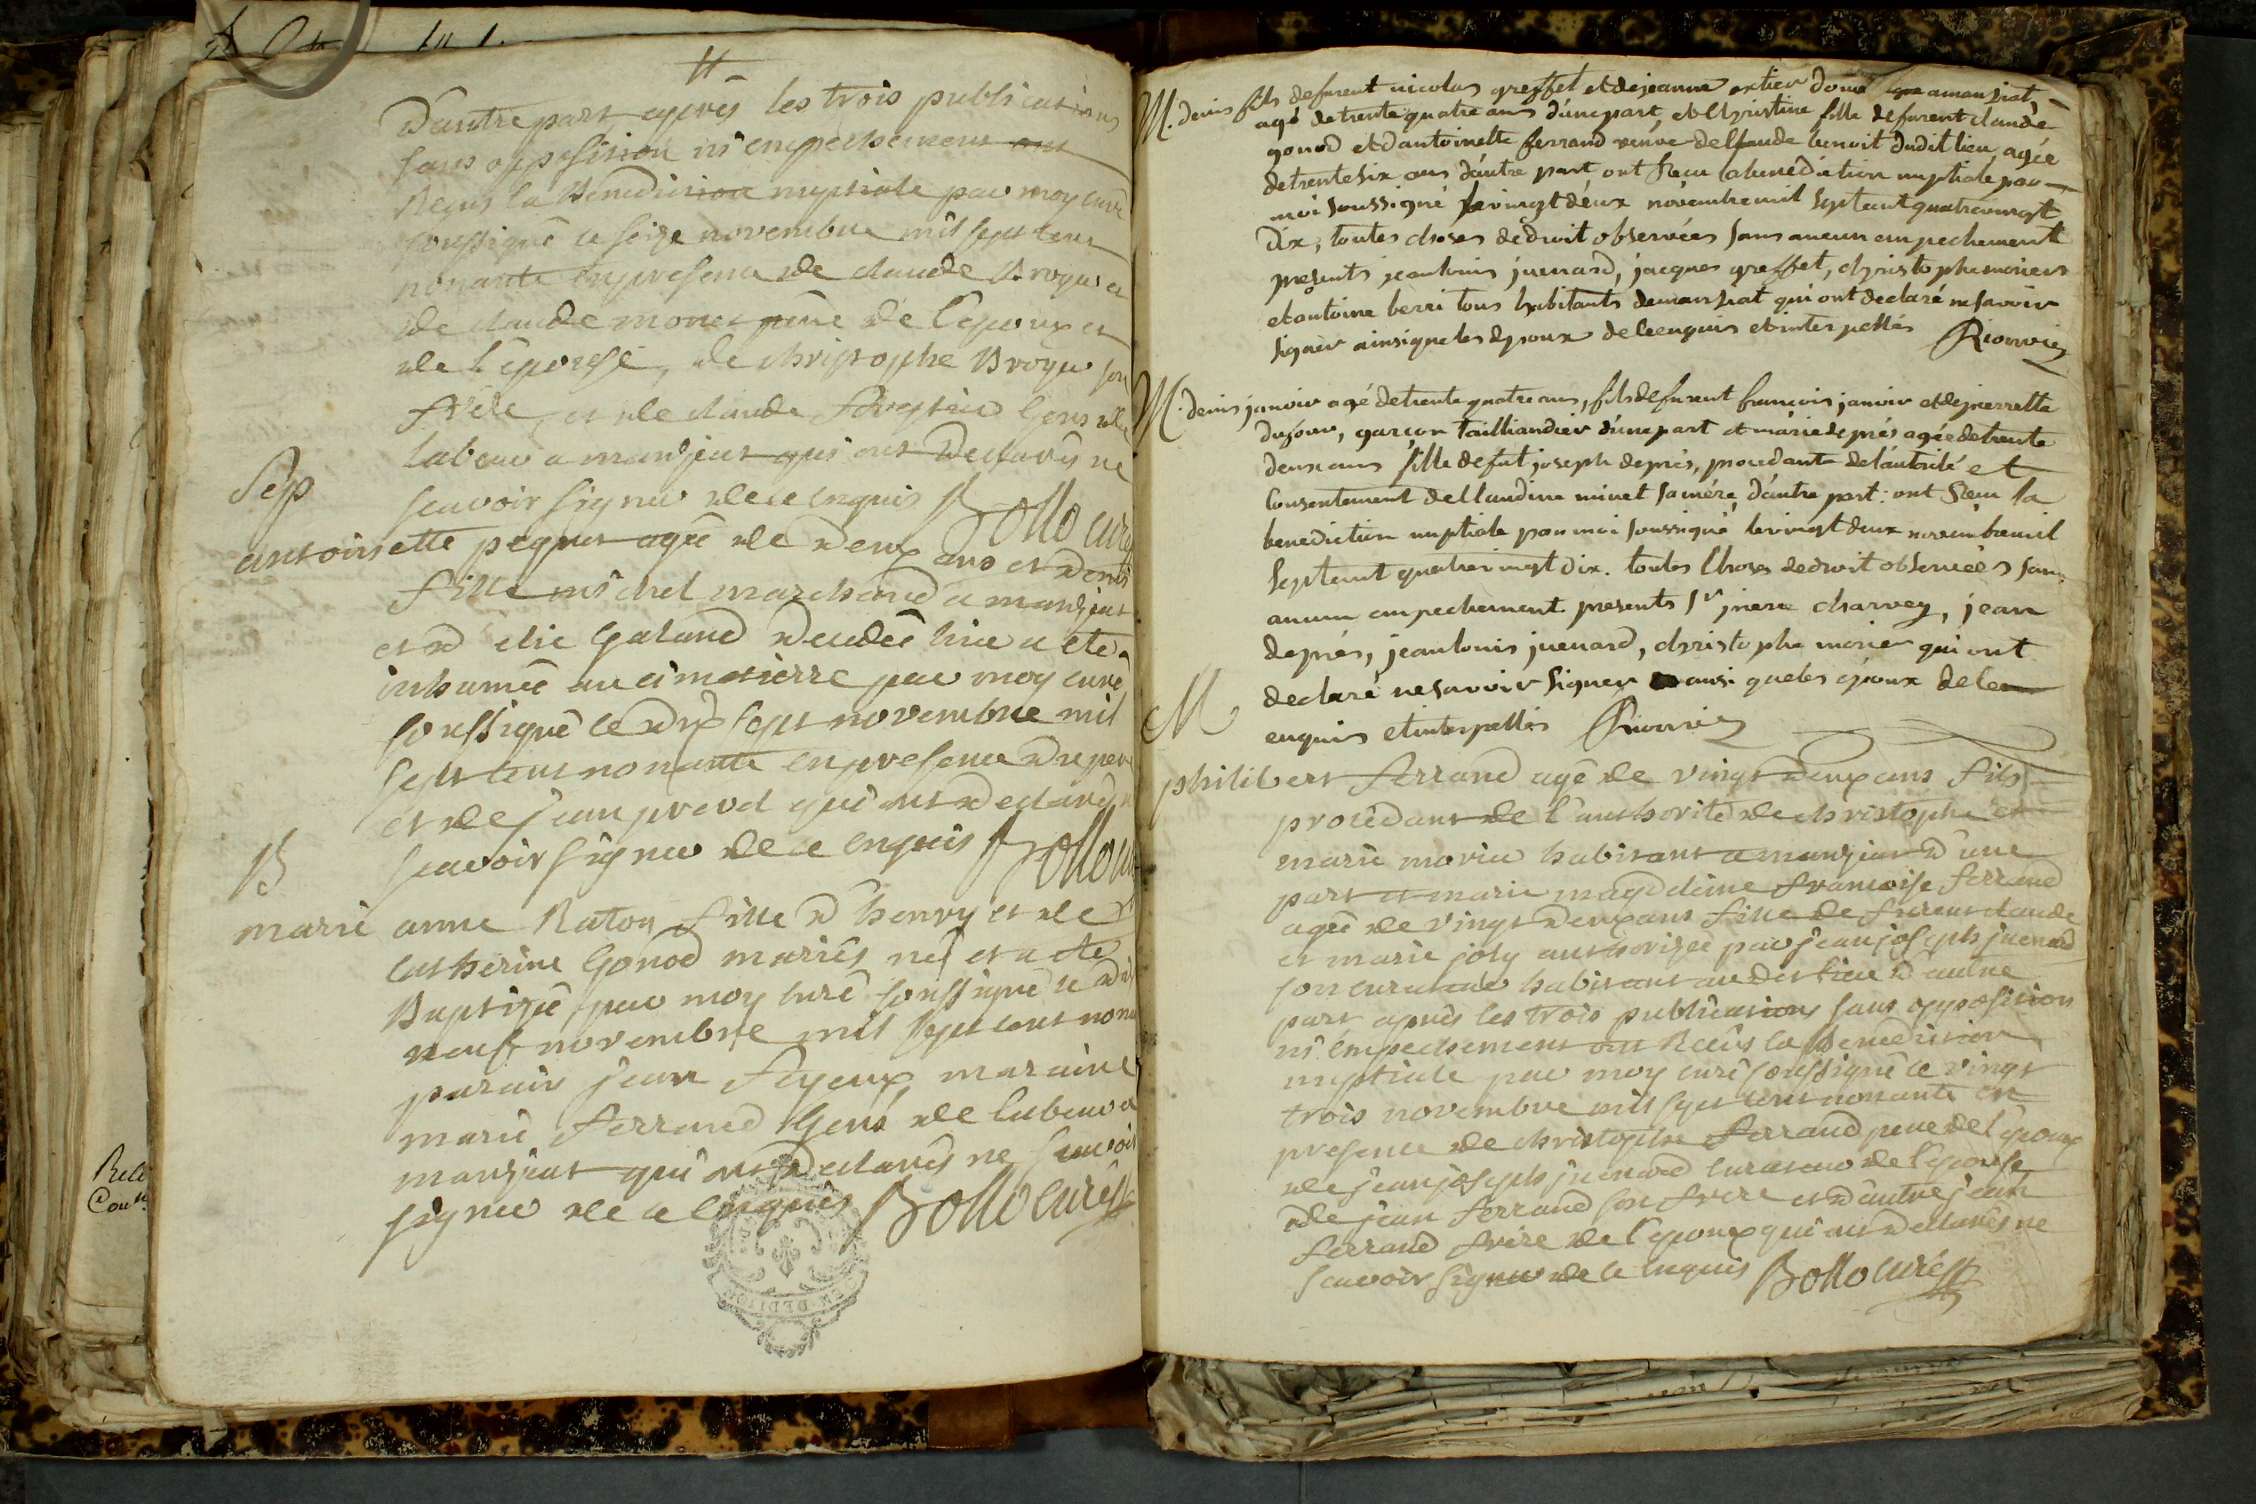 11
D'autre part après les trois publications
sans opposition ni empechement ont
Reçus la Benediction nuptiale par moy curé
soussigné ce seize novembre mil sept cent
nonante en presence de claude Broyer et
de claude monet pere de l'epoux et
de l'epouse, de christophe Broyer son
frere, et de claude forestier gens de
labeur a manziat qui ont declarés ne
Sep
scavoir signer de ce enquis Bollo curé
antoinette pequet agée de deux ans et demi
fille michel marchand a manziat
et d' elie galand decedée hier a ete
inhumée au cimetierre par moy curé
soussigné ce dix sept novembre mil
sept cent nonante en presence du pere
et de jean provel qui ont declarés
B
scavoir signer de ce enquis Bollo
marie anne Raton fille d'henry et de
catherine Gonod mariés né et a ete
Baptizée par moy curé soussigné ce dix
neuf novembre mil sept cent nona
parain jean feyeux maraine
marie ferrand Gens de labeur a
manziat qui ont declarés ne scavoir
signer de ce enquis Bollo curé
M. denis fils de furent nicolas greffet et de jeanne domé a manziat,
agé de trente quatre ans d'une part, et christine fille de furent claude
gonod et d'antoinette ferrand veuve de claude benoit dudit lieu agée
de trente six ans d'autre part ont recu la benediction nuptiale par
moi soussigné le vingt deux novembre mil sept cent quatre vingt
dix, toutes choses de droit observées sans aucun empechement
presents jean louis juenard, jacques greffet, christophe morier
et antoine berri tous habitants de manziat qui ont declaré ne savoir
signer ainsi que les epoux de ce enquis et interpellés
M. denis janvier agé de trente quatre ans, fils de furent francois janvier et de pierrette
dufour, garçon tailliandier d'une part et marie deprés agée de trente
deux ans fille de fut joseph deprés, procedante de l'autorité et
consentement de claudine minet sa mére, d'autre part: ont recu la
benediction nuptiale par moi soussigné le vingt deux novembre mil
sept cent quatre vingt dix. toutes choses de droit observées sans
aucun empechement presents Sr pierre charvey, jean
deprés, jean louis juenard, christophe morier qui ont
declaré ne savoir signer ainsi que les époux de ce
M
enquis et interpellés
philibert ferrand agé de vingt deux ans fils
procédant de l'authorité de christophe et
marie morier habitant a manziat d'une
part et marie magdeleine francoise ferrand
agée de vingt deux ans fille de furent claude
et marie joly authorizée par jean joseph juenard
son curateur habitant audit lieu d'autre
part après les trois publications sans opposition
ni empechement ont Recûs la Benediction
nuptiale par moy curé soussigné ce vingt
trois novembre mil sept cent nonante en
presence de christophe ferrand pere de l'epoux
de jean joseph juenard curateur de l'epouse
de jean ferrand son frere et d'autre jean
ferrand frere de l'epoux qui ont declarés ne
scavoir signer de ce enquis Bollo curé